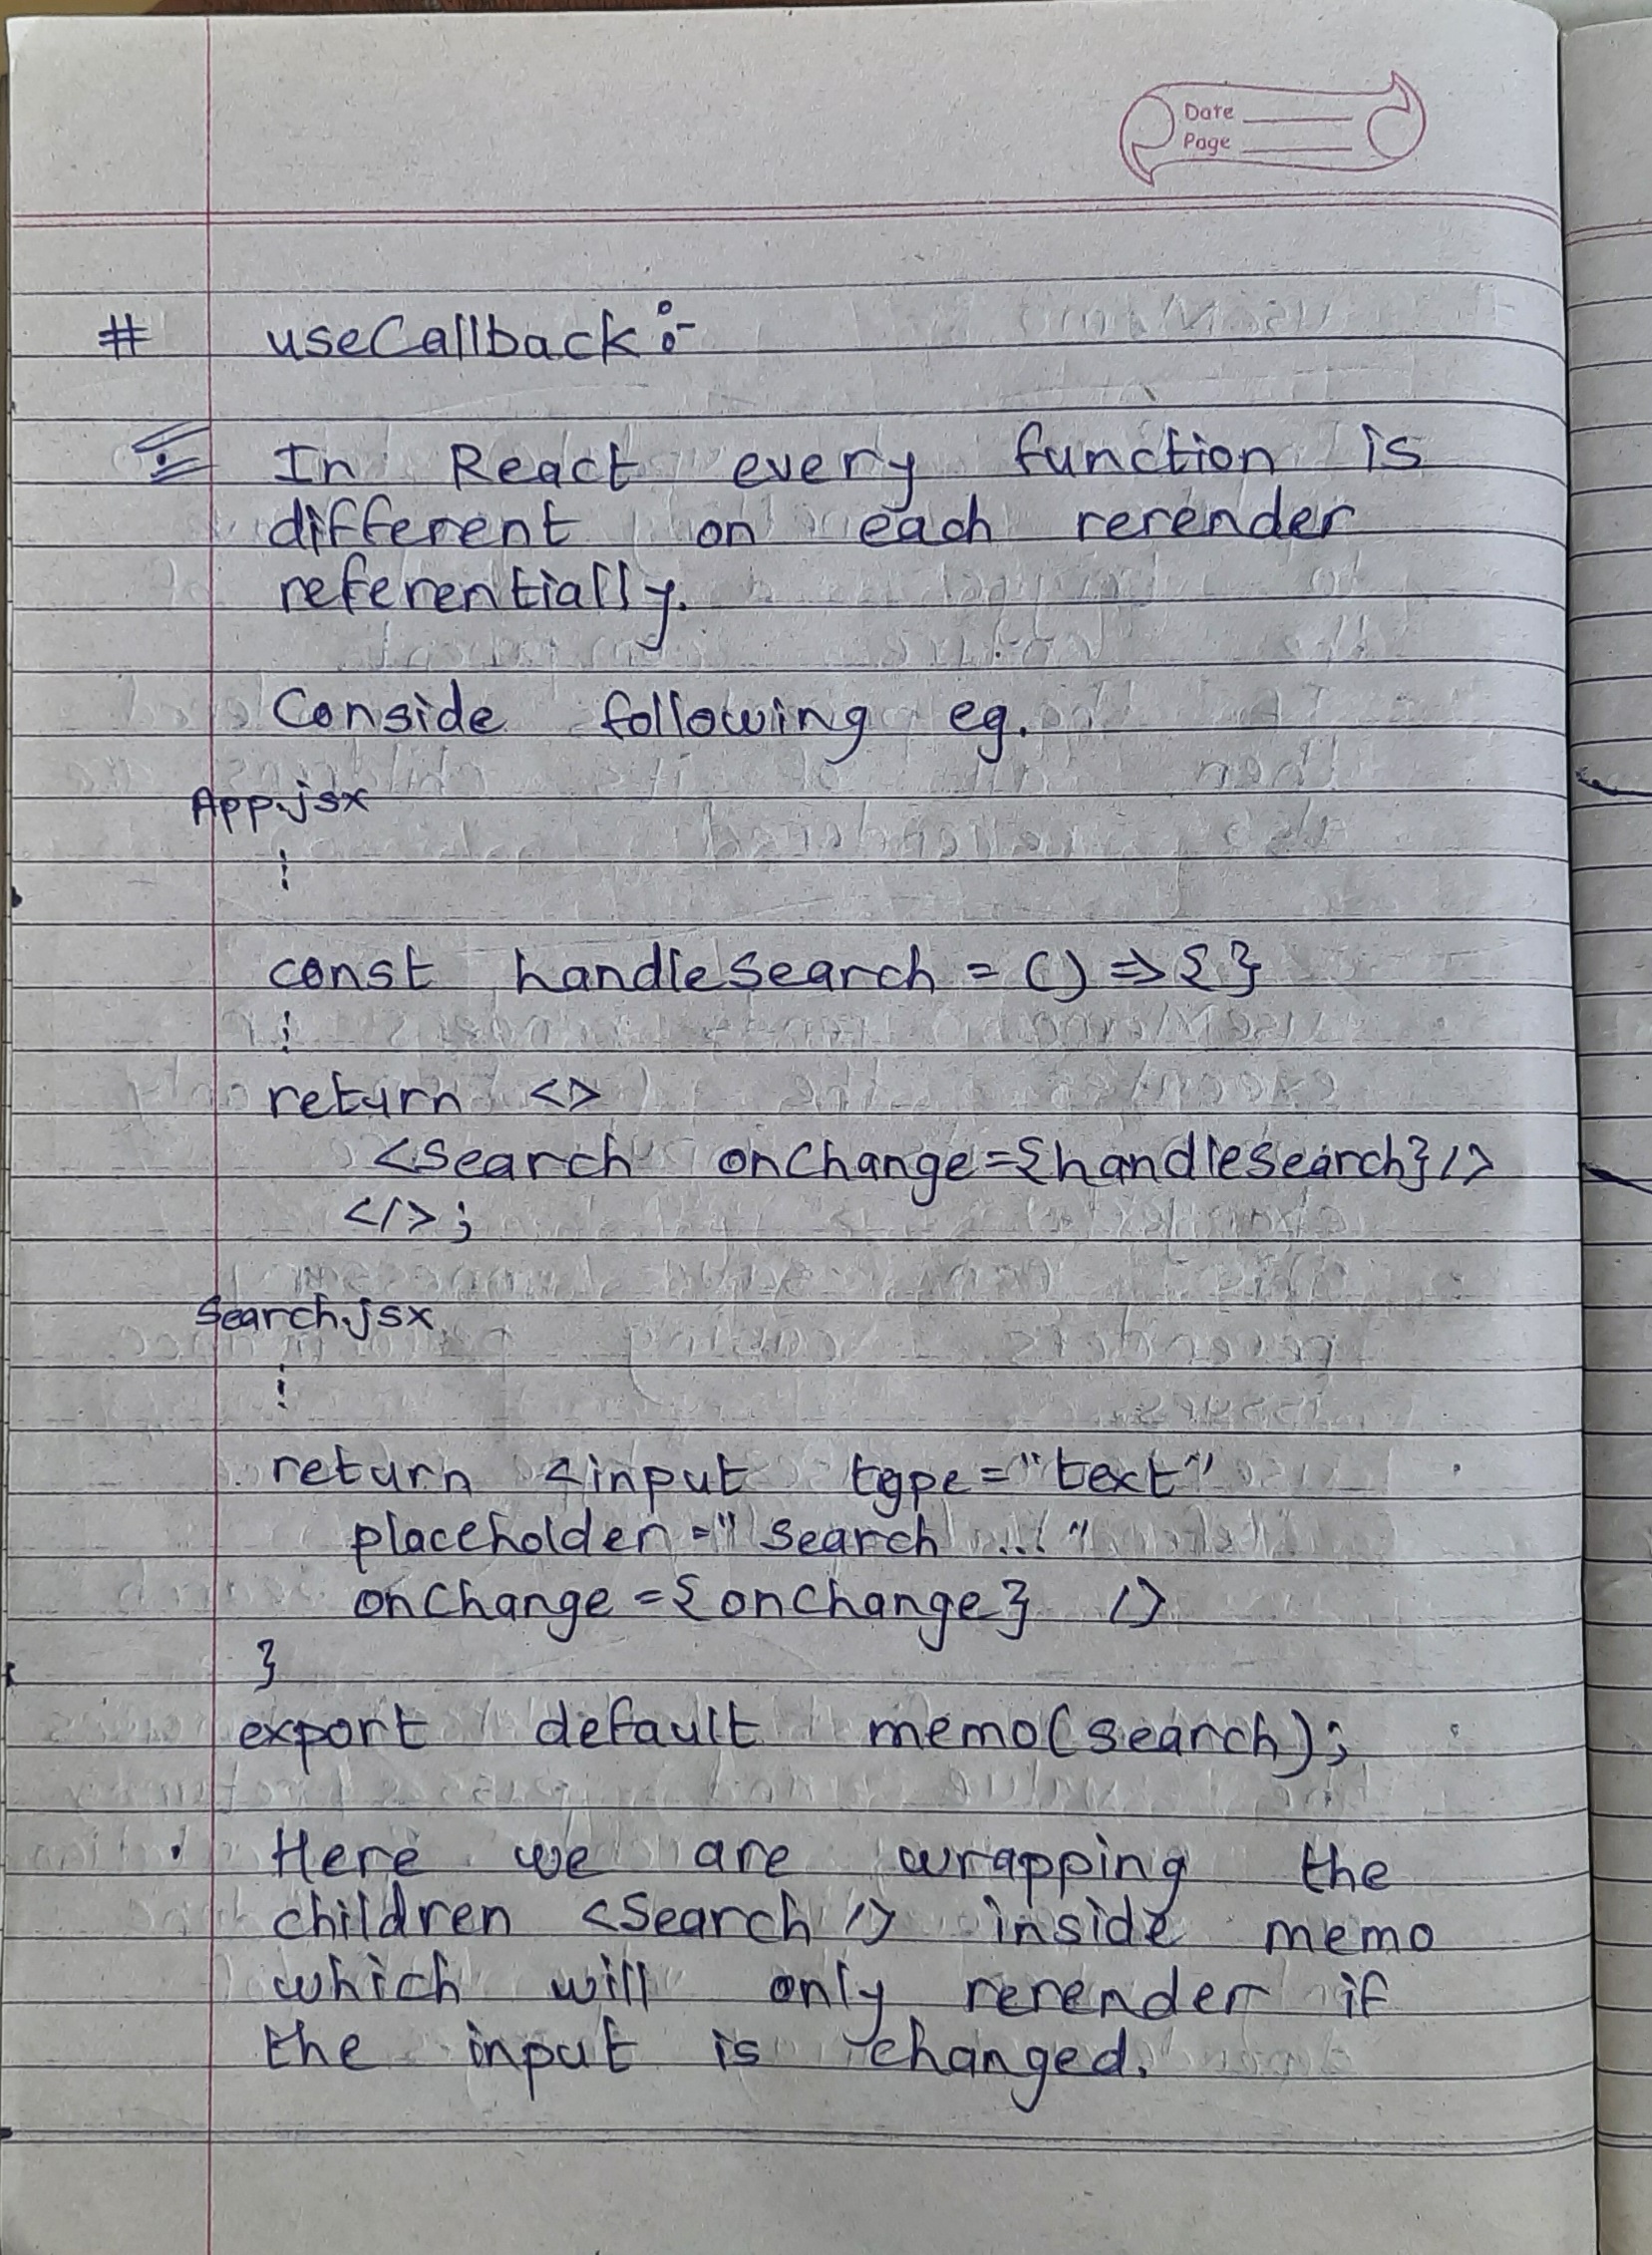 Date
Page
# useCallback :-
In React every function is
different on each rerender
referentially.
Conside following eg.
App.jsx
⋮
const handleSearch = () => { }
⋮
return <>
<Search onChange={handleSearch} />
</>;
Search.jsx
⋮
return <input type="text"
placeholder="Search ..."
onChange={onChange} />
}
export default memo(Search);
· Here we are wrapping the
children <Search /> inside memo
which will only rerender if
the input is changed.